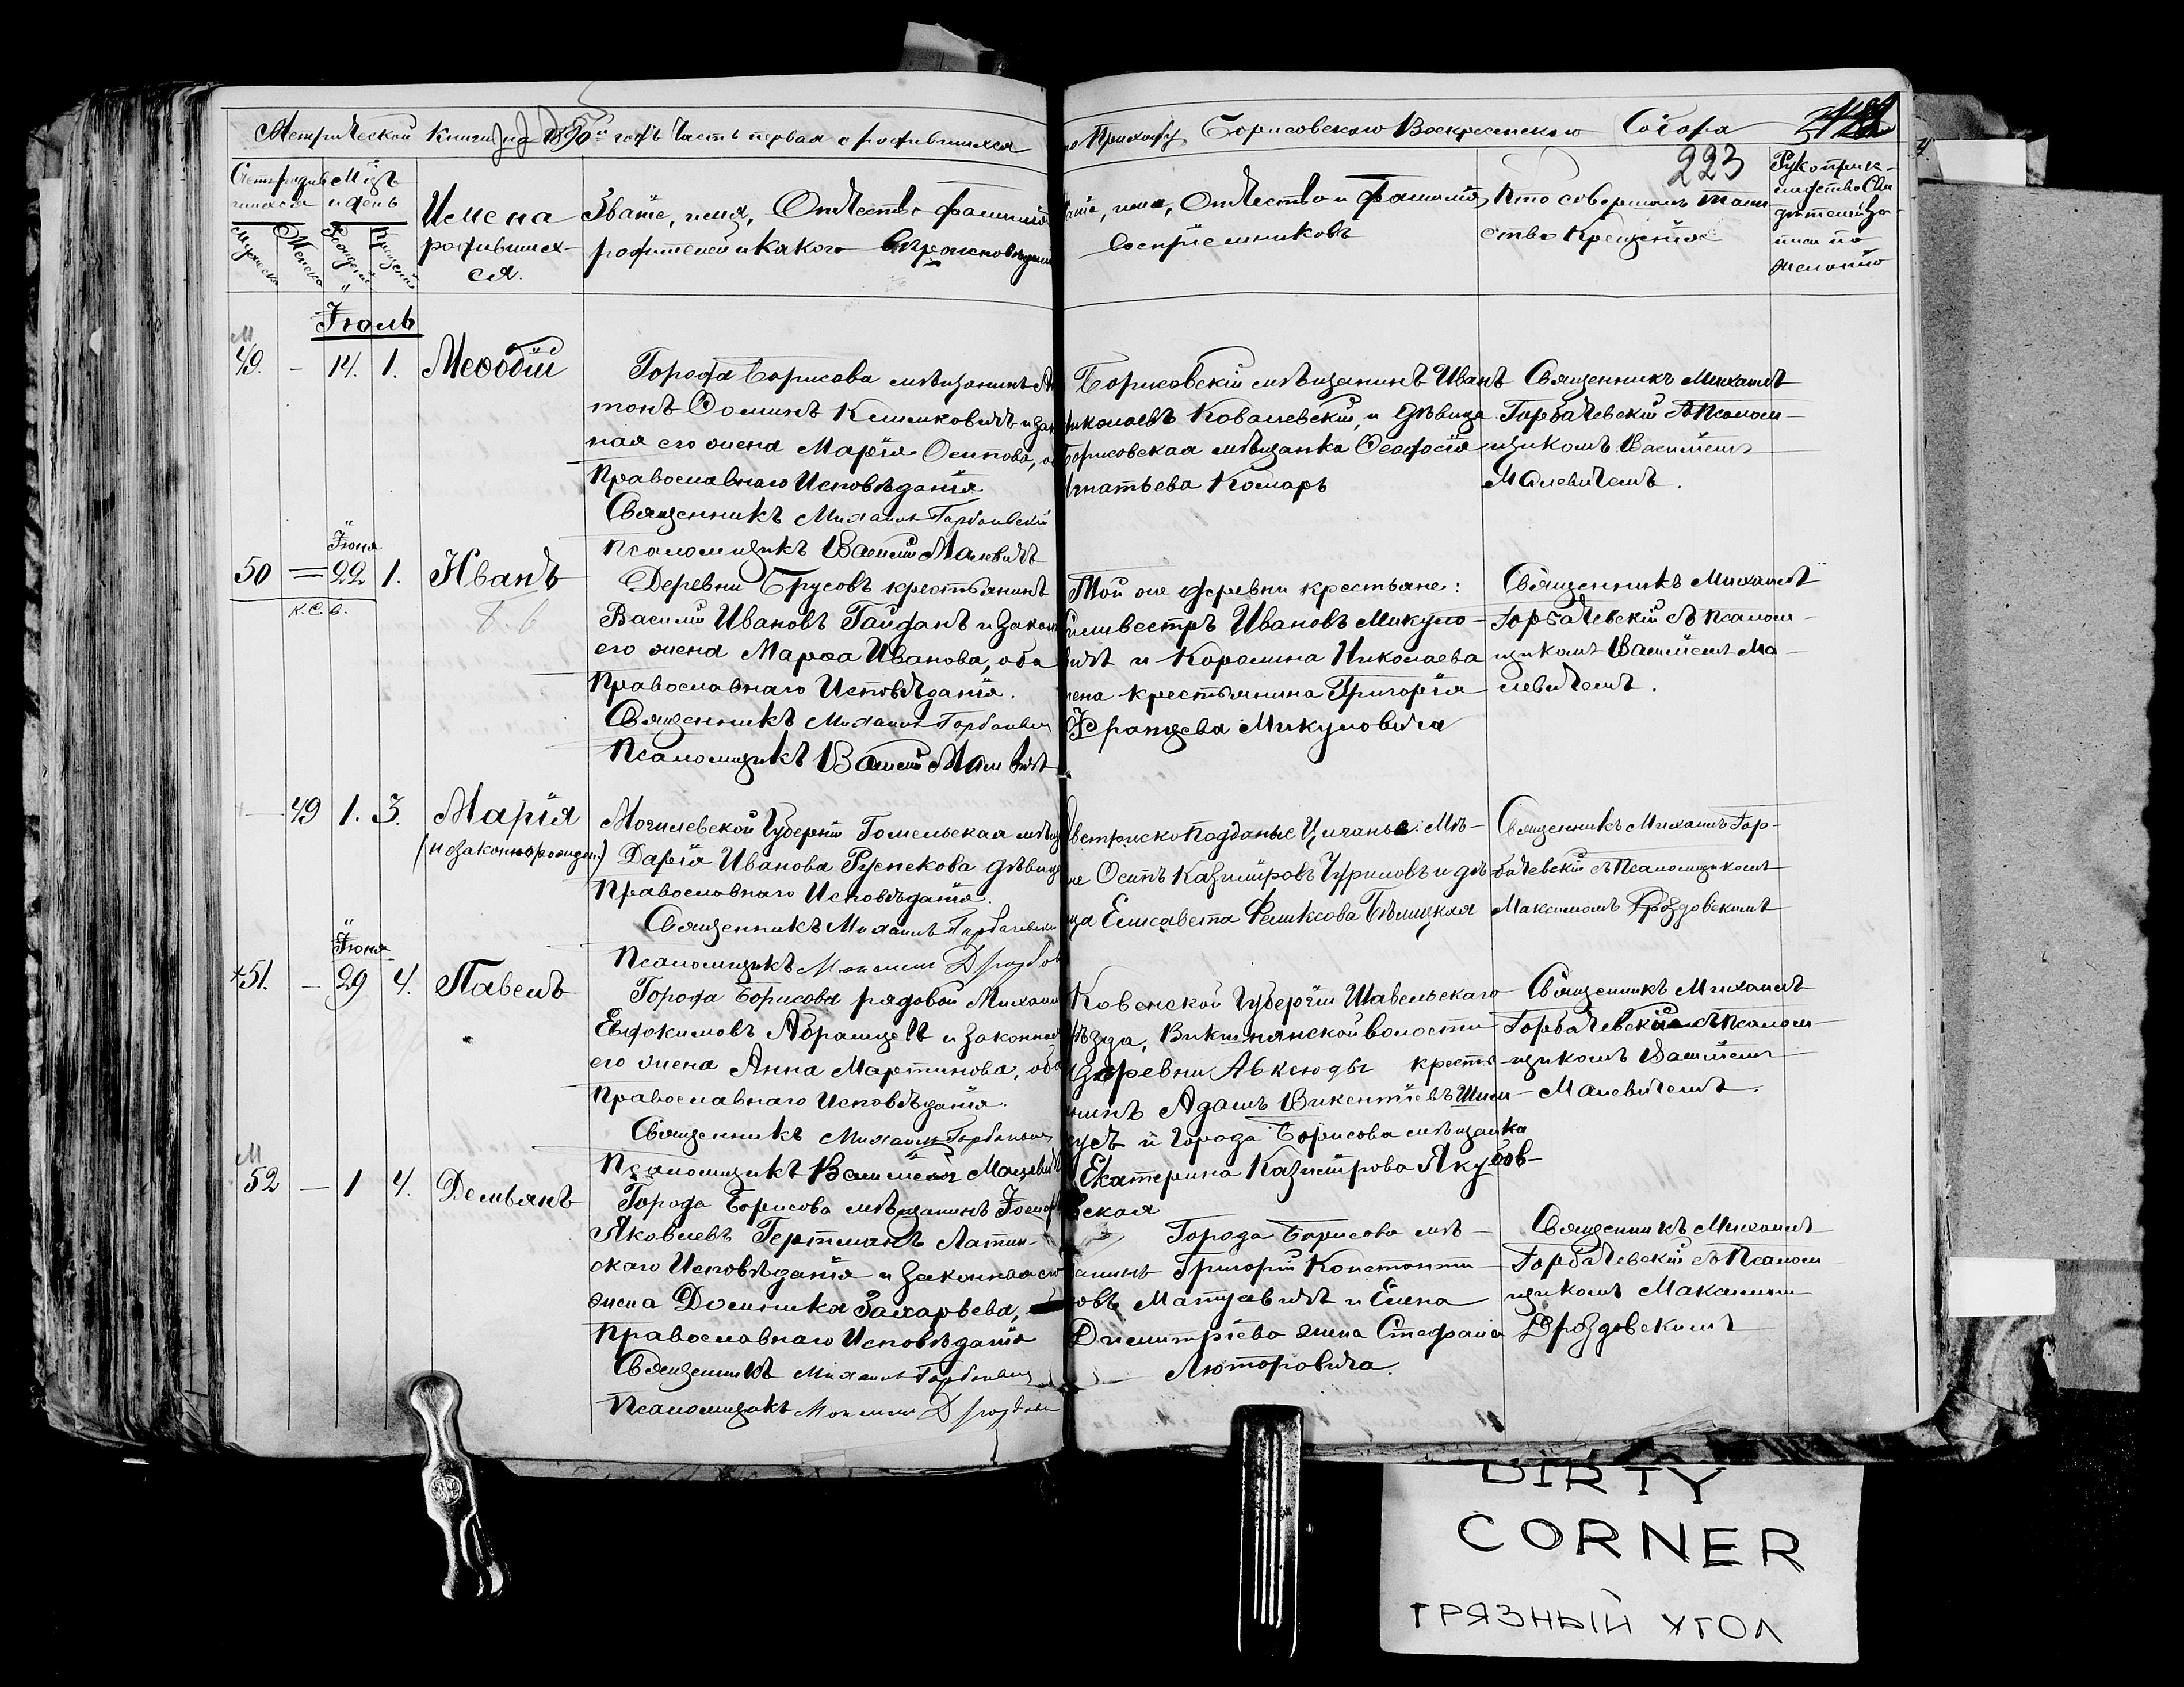 Метрической Книги на 1890й годъ Часть первая о родившихся
по Приходу Борисовскаго Воскресенскаго Собора
223
Счетъ родив
шихся
Мужеска
Женска
Мѣсяцъ
и день
Рожденія
Крещенія
Имена
родившихся
ся.
Званіе, имя, Отчество фамилія
родителей и какого Вѣроисповѣданія
Званіе, имя, Отчество и фамилія
Воспріемниковъ
Кто совершалъ таин
ство Крещенія
Рукоприк-
ладство Сви
дѣтелей за-
писи по
желанію
Іюль
М
49. - 14. 1. Меѳодій
Города Борисова мѣщанинъ Ан
тонъ Ѳоминъ Климковичъ и закон
ная его жена Марія Осипова, оба
Православнаго Исповѣданія
Священникъ Михаилъ Горбачевскій
Псаломщикъ Василій Малевичъ
Борисовскій мѣщанинъ Иванъ
Николаевъ Ковалевскій, и дѣвица
Борисовская мѣщанка Ѳеодосія
Игнатьева Комаръ
Священникъ Михаилъ
Горбачевскій съ Псалом-
щикомъ Василіемъ
Малевичемъ.
Іюня
50 = 22 1. Иванъ
к.с.в.
Деревни Брусовъ крестьянинъ
Василій Ивановъ Гайданъ и закон
его жена Марѳа Иванова, оба
Православнаго Исповѣданія.
Священникъ Михаилъ Горбачевскій
Псаломщикъ Василій Малевичъ
Той же деревни крестьяне:
Сильвестръ Ивановъ Микуло-
вичъ и Каролина Николаева
жена крестьянина Григорія
Францева Микуловича
Священникъ Михаилъ
Горбачевскій съ Псалом-
щикомъ Василіемъ Ма-
левичемъ.
49 1. 3. Марія
(незаконнорожден.)
Могилевской Губерніи Гомельская мѣщ
Дарія Иванова дѣвица
Православнаго Исповѣданія.
Священникъ Михаилъ Горбачевскій
Псаломщикъ Максимъ Дроздов
Австрископодданые Цыгане: Мѣ-
не Осипъ Казиміровъ Чуриловъ и дѣ-
ца Елисавета Феликсова Бѣлицкая
Священникъ Михаилъ Гор-
бачевскій съ Псаломщикомъ
Максимомъ Дроздовскимъ
Іюня
+51. - 29 4. Павелъ
Города Борисова рядовой Михаил
Евдокимовъ Абрамцевъ и законная
его жена Анна Мартинова, оба
Православнаго Исповѣданія.
Священникъ Михаилъ Горбачевскій
Псаломщикъ Василій Малевичъ
Ковенской Губерніи Шавельскаго
Уѣзда, Викшнянской волости
деревни Авксюды кресть-
янинъ Адамъ Викентіевъ Шим-
кусъ и Города Борисова мѣщанка
Екатерина Казимірова Якубов-
ская
Священникъ Михаилъ
Горбачевскій съ псалом-
щикомъ Василіемъ
Малевичемъ.
М
52 - 1 4. Демьянъ
Города Борисова мѣщанинъ Іосифъ
Яковлевъ Гертманъ Латин-
скаго Исповѣданія и законная его
жена Доминика Захарьева,
Православнаго Исповѣданія
Священникъ Михаилъ Горбачевскій
Псаломщикъ Максимъ Дроздовск
Города Борисова мѣ-
щанинъ Григорій Константи-
новъ Матусевичъ и Елена
Димитріева жена Стефана
Люторовича.
Священникъ Михаилъ
Горбачевскій съ Псалом
щикомъ Максимомъ
Дроздовскимъ
DIRTY
CORNER
ГРЯЗНЫЙ УГОЛ